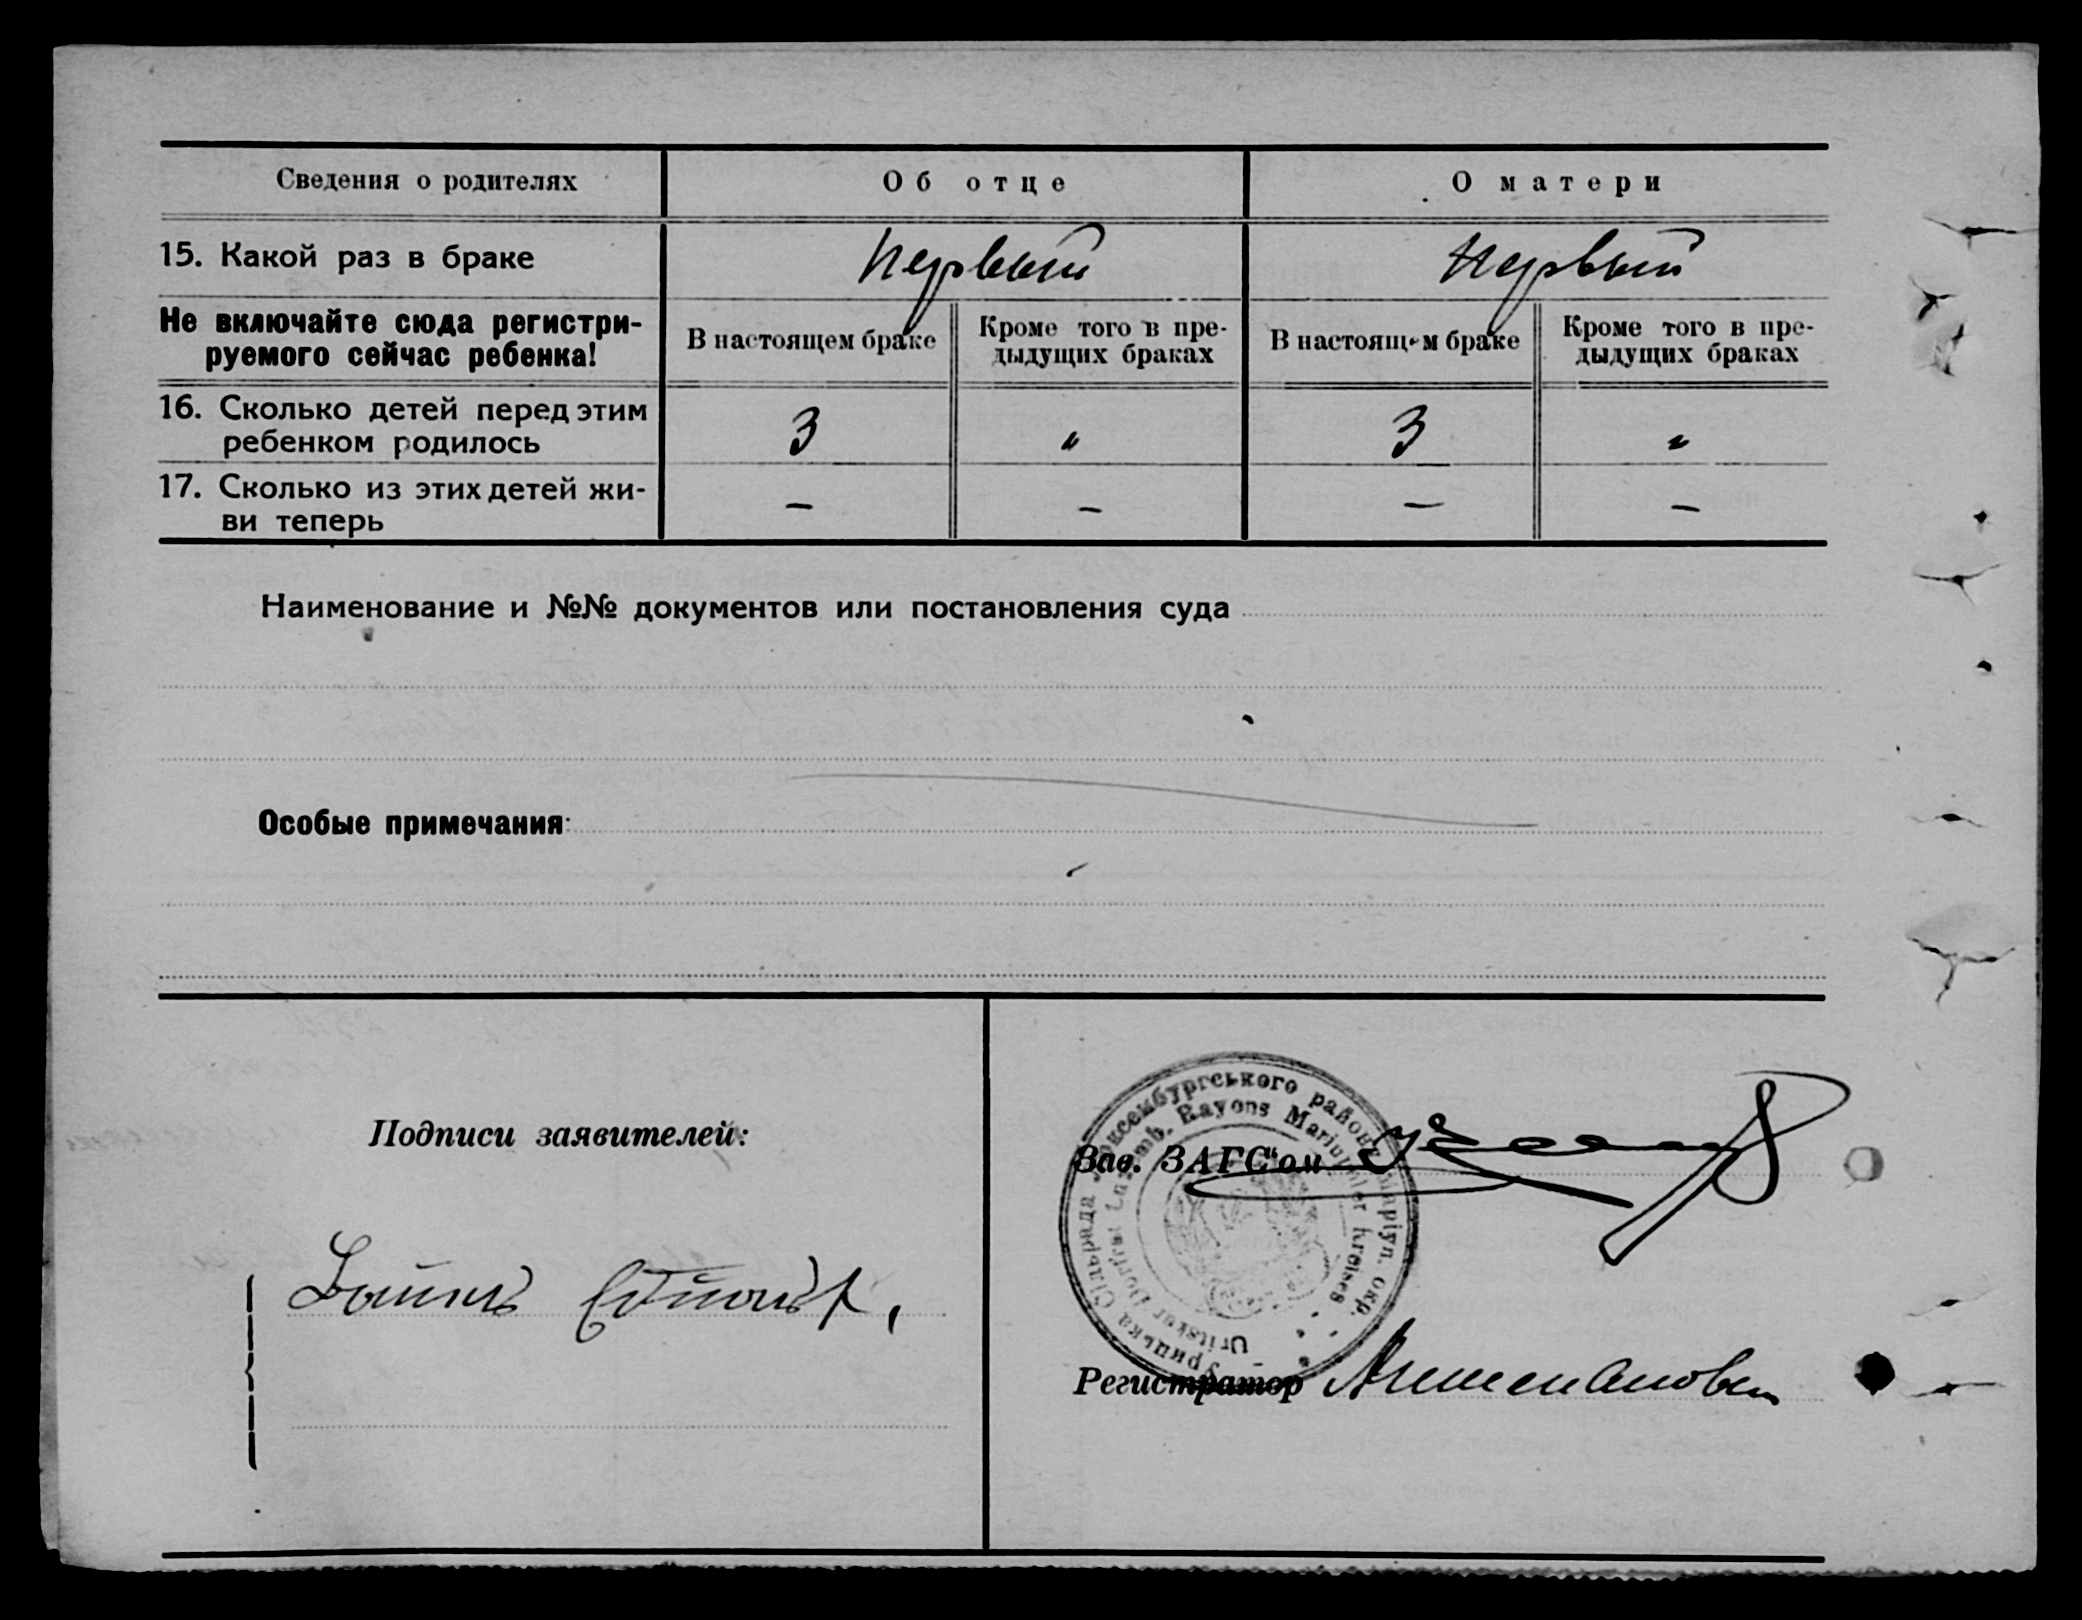 Сведения о родителях
Об отце
О матери
15. Какой раз в браке
первый
первый
Не включайте сюда регистри-
руемого сейчас ребенка!
В настоящем браке
Кроме того в пре-
дыдущих браках
В настоящем браке
Кроме того в пре-
дыдущих браках
16. Сколько детей перед этим
ребенком родилось
3
"
3
"
17. Сколько из этих детей жи-
ви теперь
–
–
–
–
Наименование и №№ документов или постановления суда
Особые примечания:
Подписи заявителей:
Зав. ЗАГС"ом
Регистратор
Урицька Сільрада Люксембургського району Маріуп. окр.
Uritsker Dorfrat Luxemb. Rayons Mariupoler Kreises